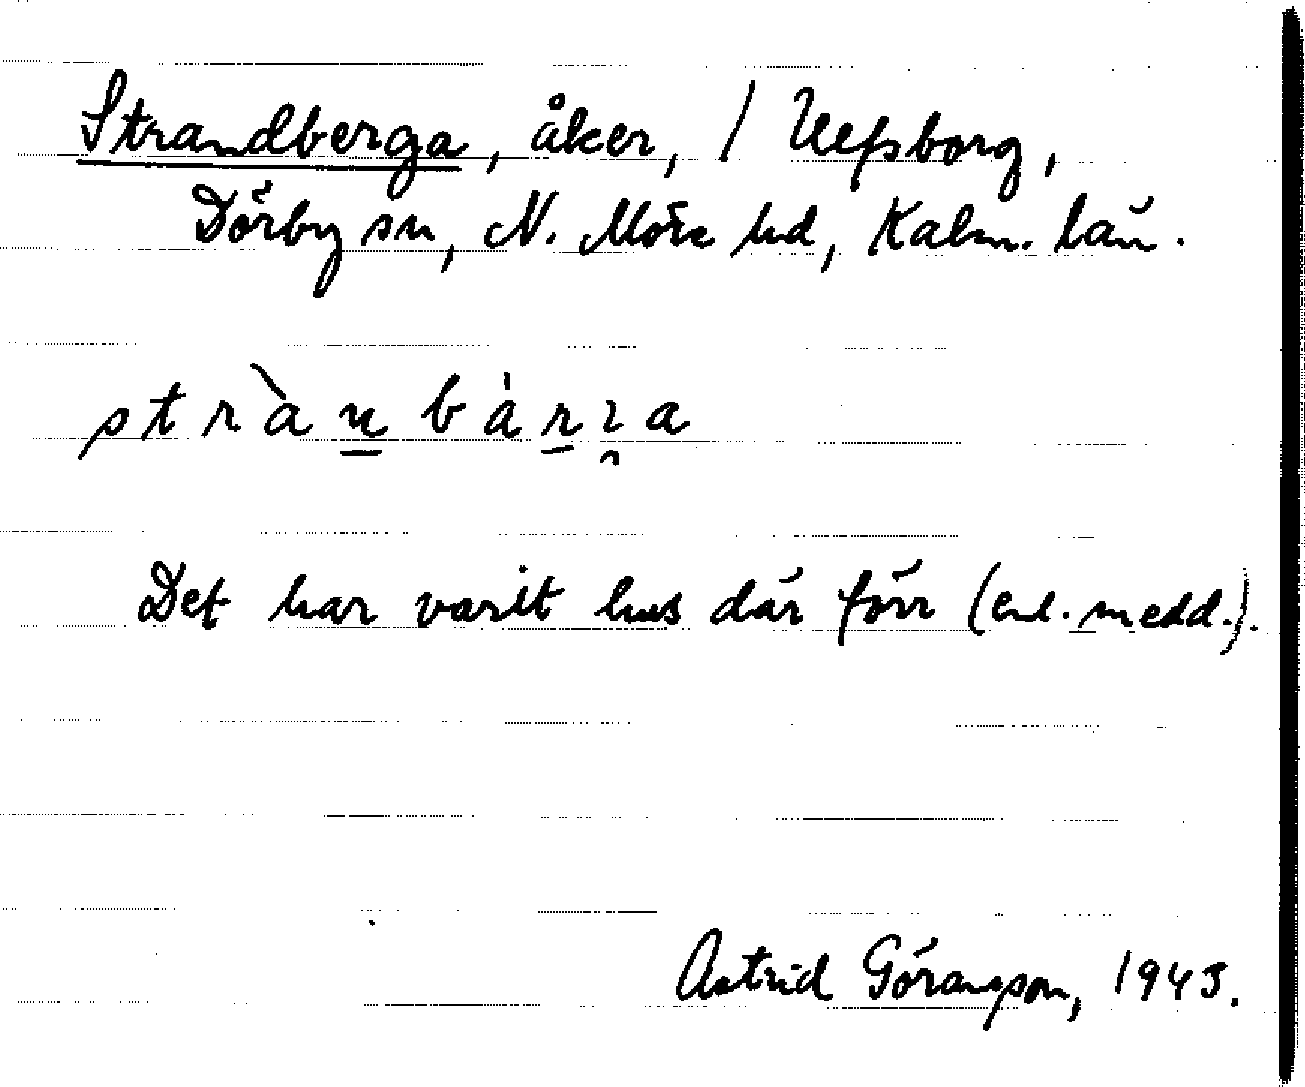 Strandberga, åker, / Ulfsborg,
Dörby sn, N. Möre hd, Kalm. län.
stràn̲bárɿ̯a
Det har varit hus där förr (enl. medd.).
Astrid Göransson, 1943.